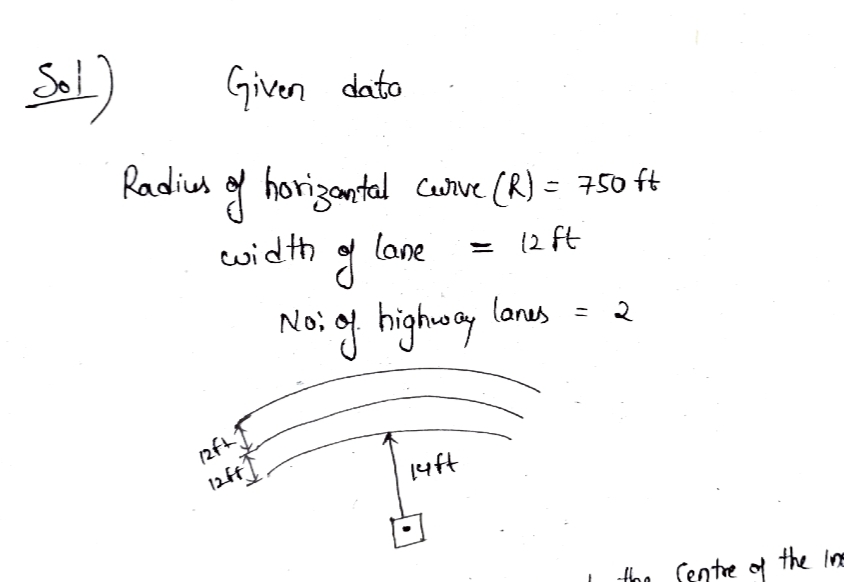 Sol)
Given data
Radius of horizantal curve (R) = 750 ft
width of lane = 12 ft
No: of highway lanes = 2
12ft
12ft
14ft
the Centre of the